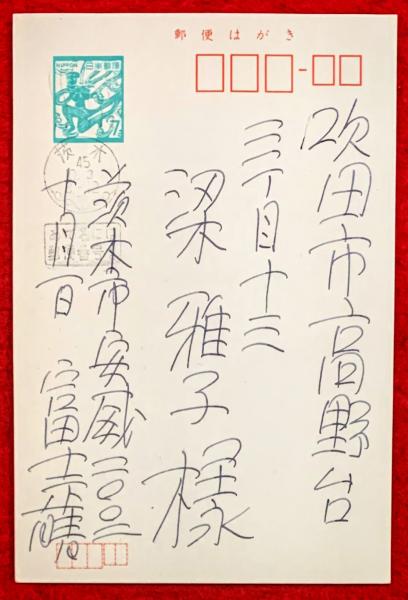 郵便はがき
NIPPON
日本郵便
7
茨木
45
吹田市高野台
三丁目十三
梁 雅子様
茨木市安威二〇〇二
富士